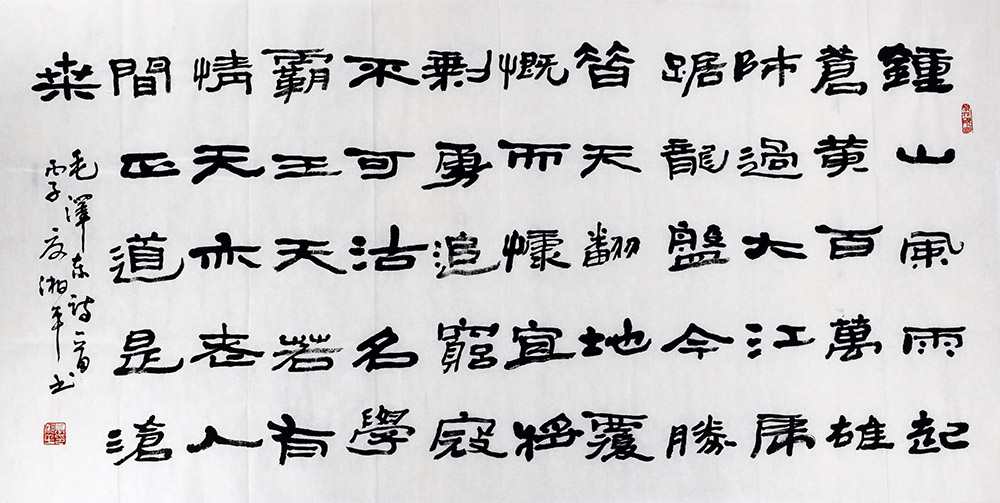 鍾山風雨起
蒼黄百萬雄
師過大江虎
踞龍盤今勝
昔天翻地覆
慨而慷宜將
剩勇追窮寇
不可沽名學
霸王天若有
情天亦老人
間正道是滄
桒
毛澤东詩一首
丙子夏湘平书